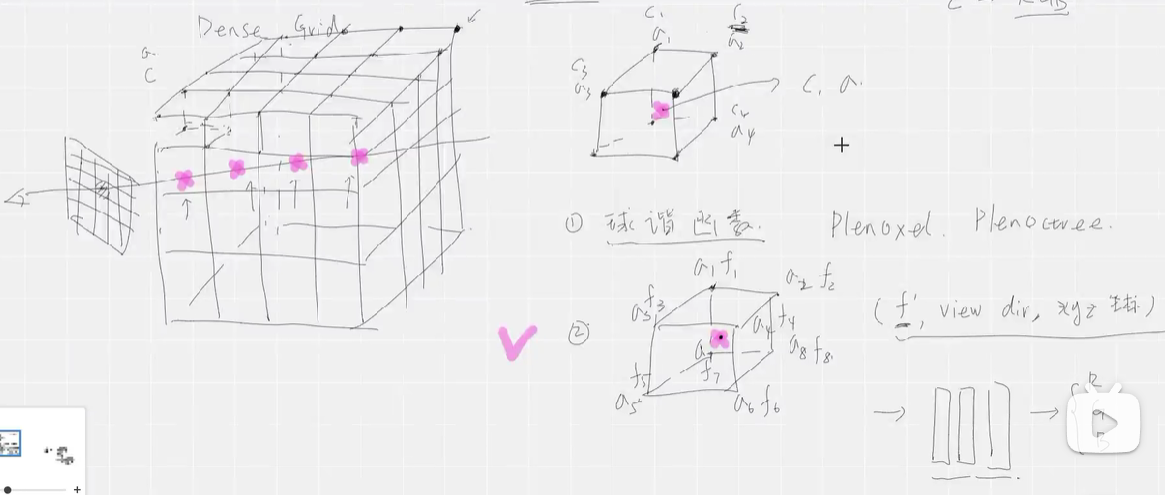 Dense Grid
a
c
c₁
a₁
c₂
a₂
c₃
a₃
c₄
a₄
c, a
① 球谐函数. Plenoxel. Plenoctree.
②
a₁ f₁
a₂ f₂
a₃ f₃
a₄ f₄
a₅ f₅
a₆ f₆
a f₇
a₈ f₈
(f', view dir, xyz 坐标)
R
G
B